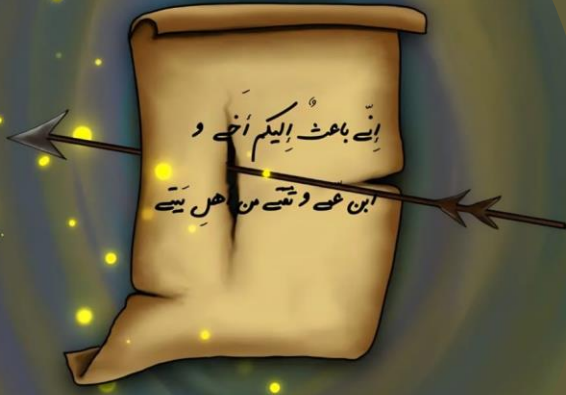 إِنّے باعثٌ إِلیکم أَخے و
ابن عَمے و ثقتے من أهلِ بَیتے